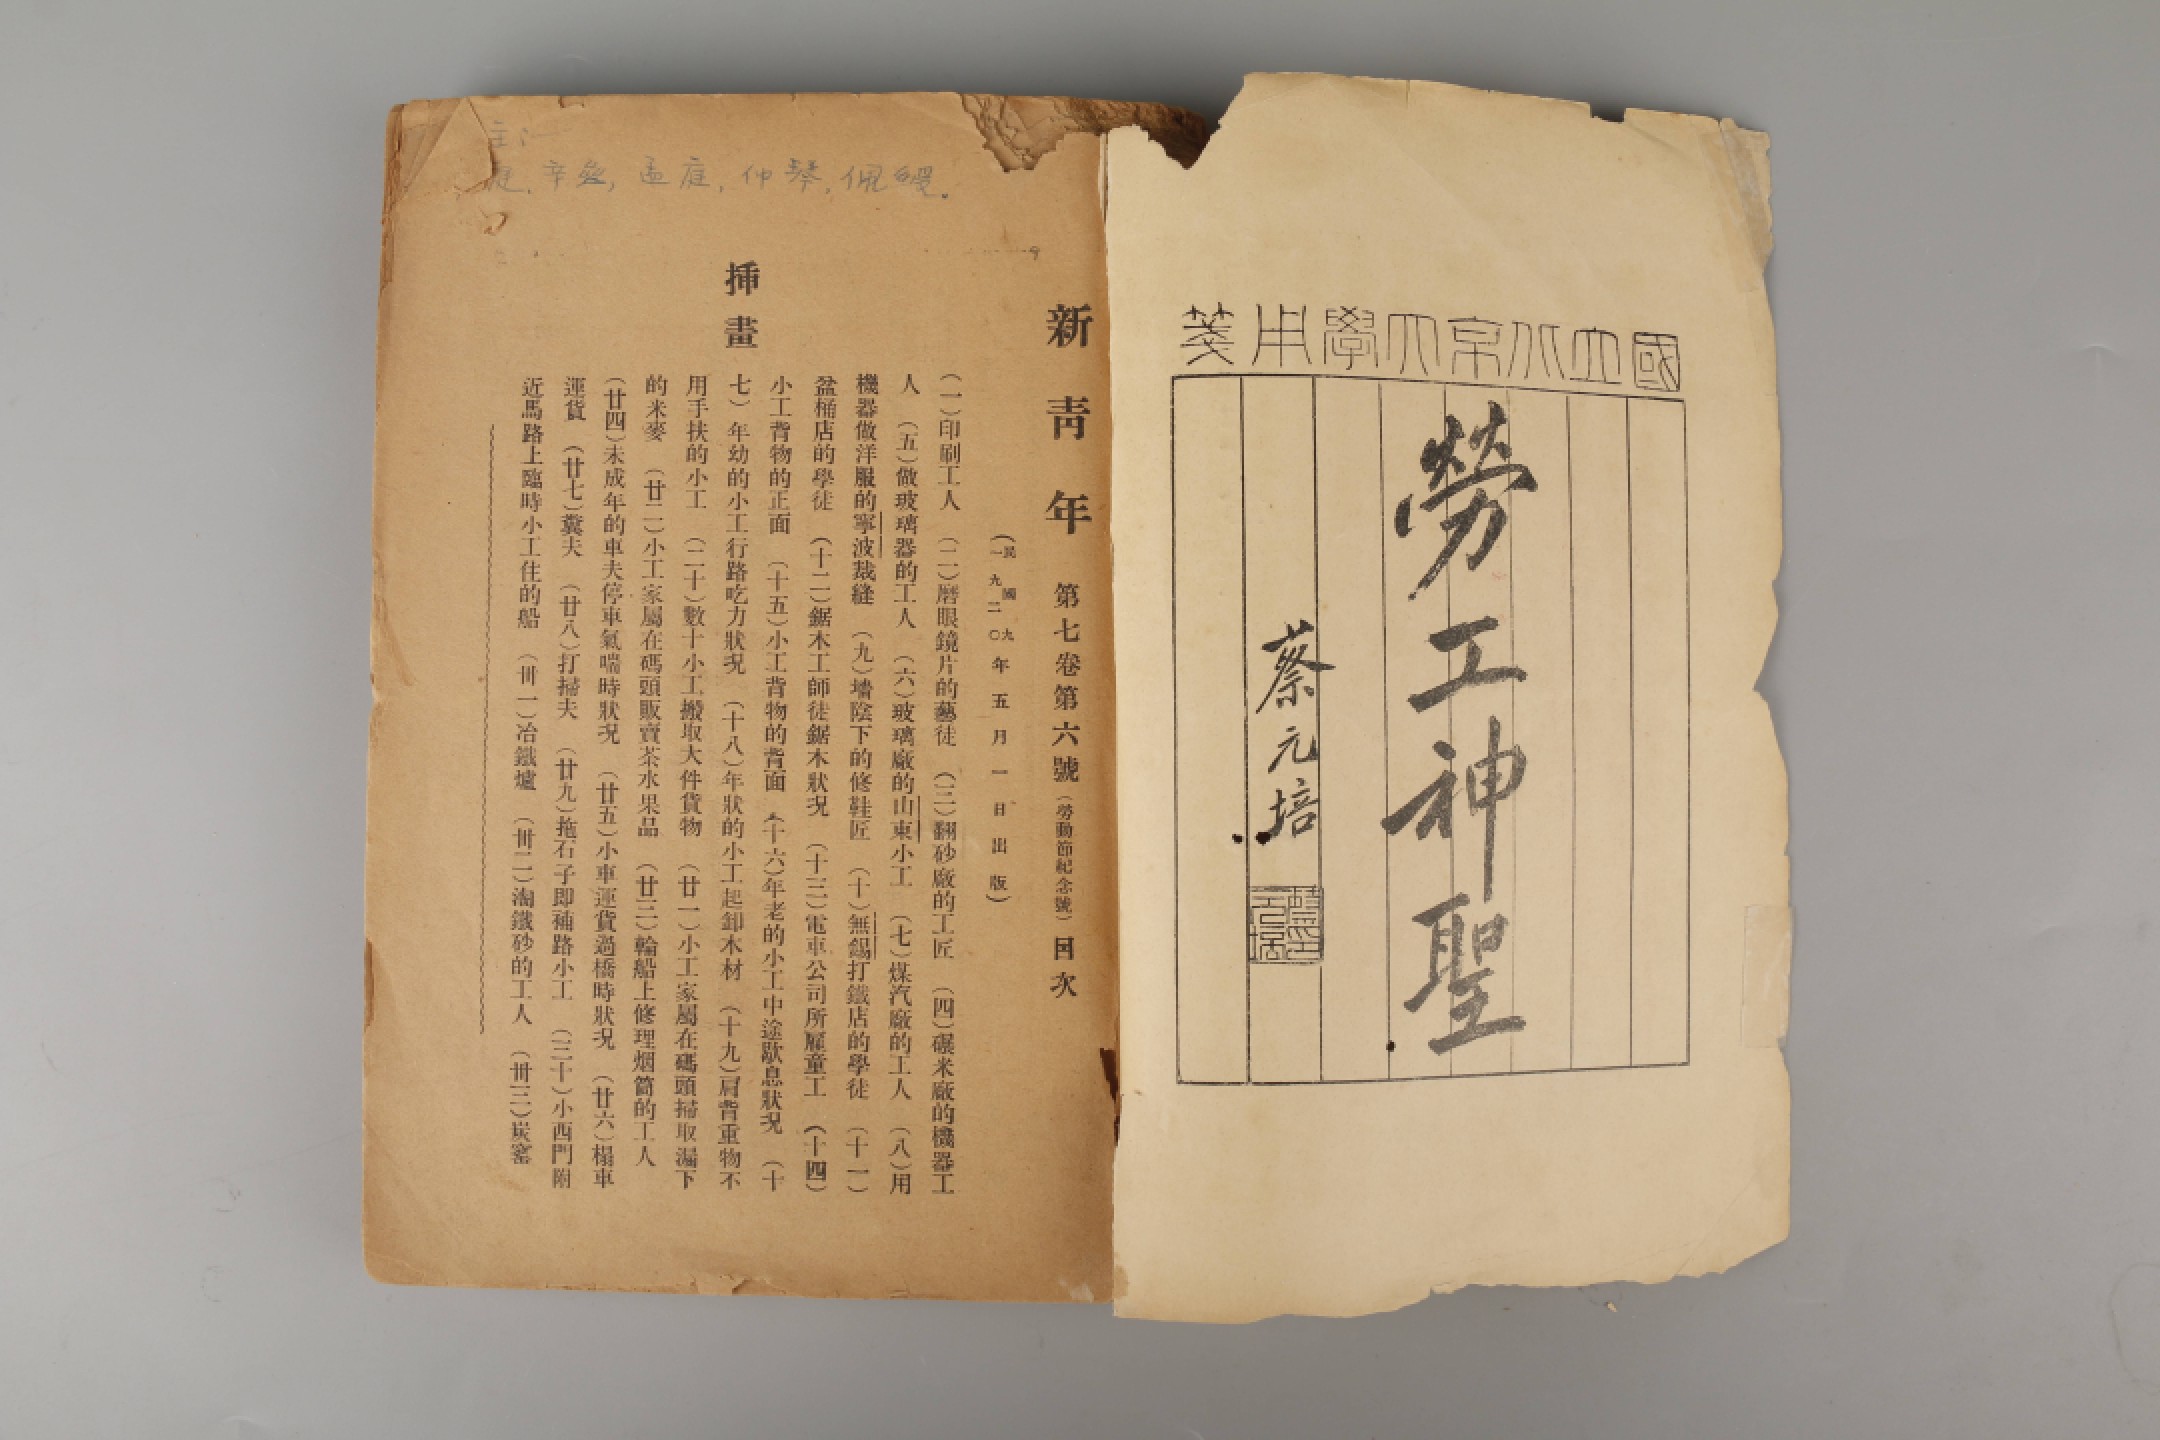 國立北京大學用箋
勞工神聖
蔡元培
新靑年 第七卷第六號(勞動節紀念號)目次
(民國九
一九二〇年五月一日出版)
揷畫
(一)印刷工人 (二)磨眼鏡片的藝徒 (三)翻砂廠的工匠 (四)碾米廠的機器工
人 (五)做玻璃器的工人 (六)玻璃廠的山東小工 (七)煤汽廠的工人 (八)用
機器做洋服的寧波裁縫 (九)墻陰下的修鞋匠 (十)無錫打鐵店的學徒 (十一)
盆桶店的學徒 (十二)鋸木工師徒鋸木狀況 (十三)電車公司所雇童工 (十四)
小工背物的正面 (十五)小工背物的背面 (十六)年老的小工中途歇息狀況 (十
七)年幼的小工行路吃力狀況 (十八)年狀的小工起卸木材 (十九)肩背重物不
用手扶的小工 (二十)數十小工搬取大件貨物 (廿一)小工家屬在碼頭掃取漏下
的米麥 (廿二)小工家屬在碼頭販賣茶水果品 (廿三)輪船上修理烟筒的工人
(廿四)未成年的車夫停車氣喘時狀況 (廿五)小車運貨過橋時狀況 (廿六)榻車
運貨 (廿七)糞夫 (廿八)打掃夫 (廿九)拖石子即補路小工 (三十)小西門附
近馬路上臨時小工住的船 (卅一)冶鐵爐 (卅二)淘鐵砂的工人 (卅三)炭窰